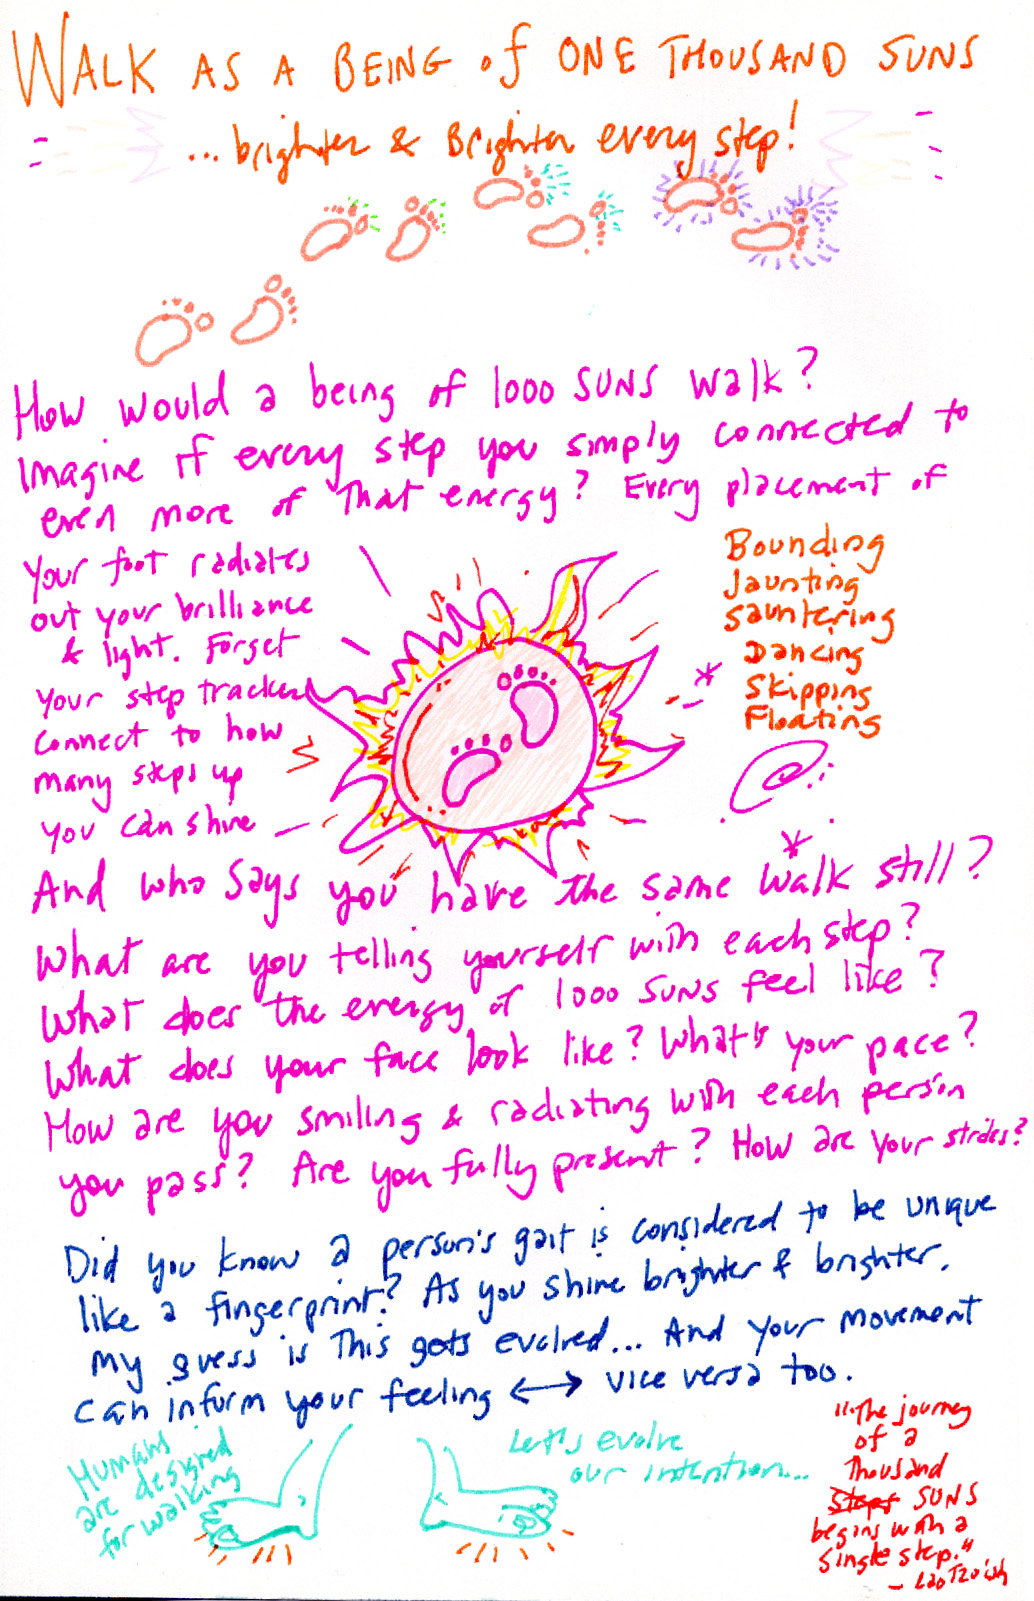 WALK AS A BEING of ONE THOUSAND SUNS
...brighter & Brighter every step!
How would a being of 1000 SUNS walk?
Imagine if every step you simply connected to
even more of That energy? Every placement of
Your foot radiates
out your brilliance
& light. Forget
your step tracker
connect to how
many steps up
you can shine
Bounding
Jaunting
Sauntering
* Dancing
Skipping
Floating
*
And who says you have the same walk still?
What are you telling yourself with each step?
What does the energy of 1000 SUNS feel like?
What does your face look like? What's your pace?
How are you smiling & radiating with each person
you pass? Are you fully present? How are your strides?
Did you know a person's gait is considered to be unique
like a fingerprint? As you shine brighter & brighter,
my guess is This gets evolved... And your movement
can inform your feeling ↔ vice versa too.
Humans
are designed
for walking
Let's evolve
our intention...
"The journey
of a
Thousand
Steps SUNS
begins with a
Single step."
- Lao Tzu ish